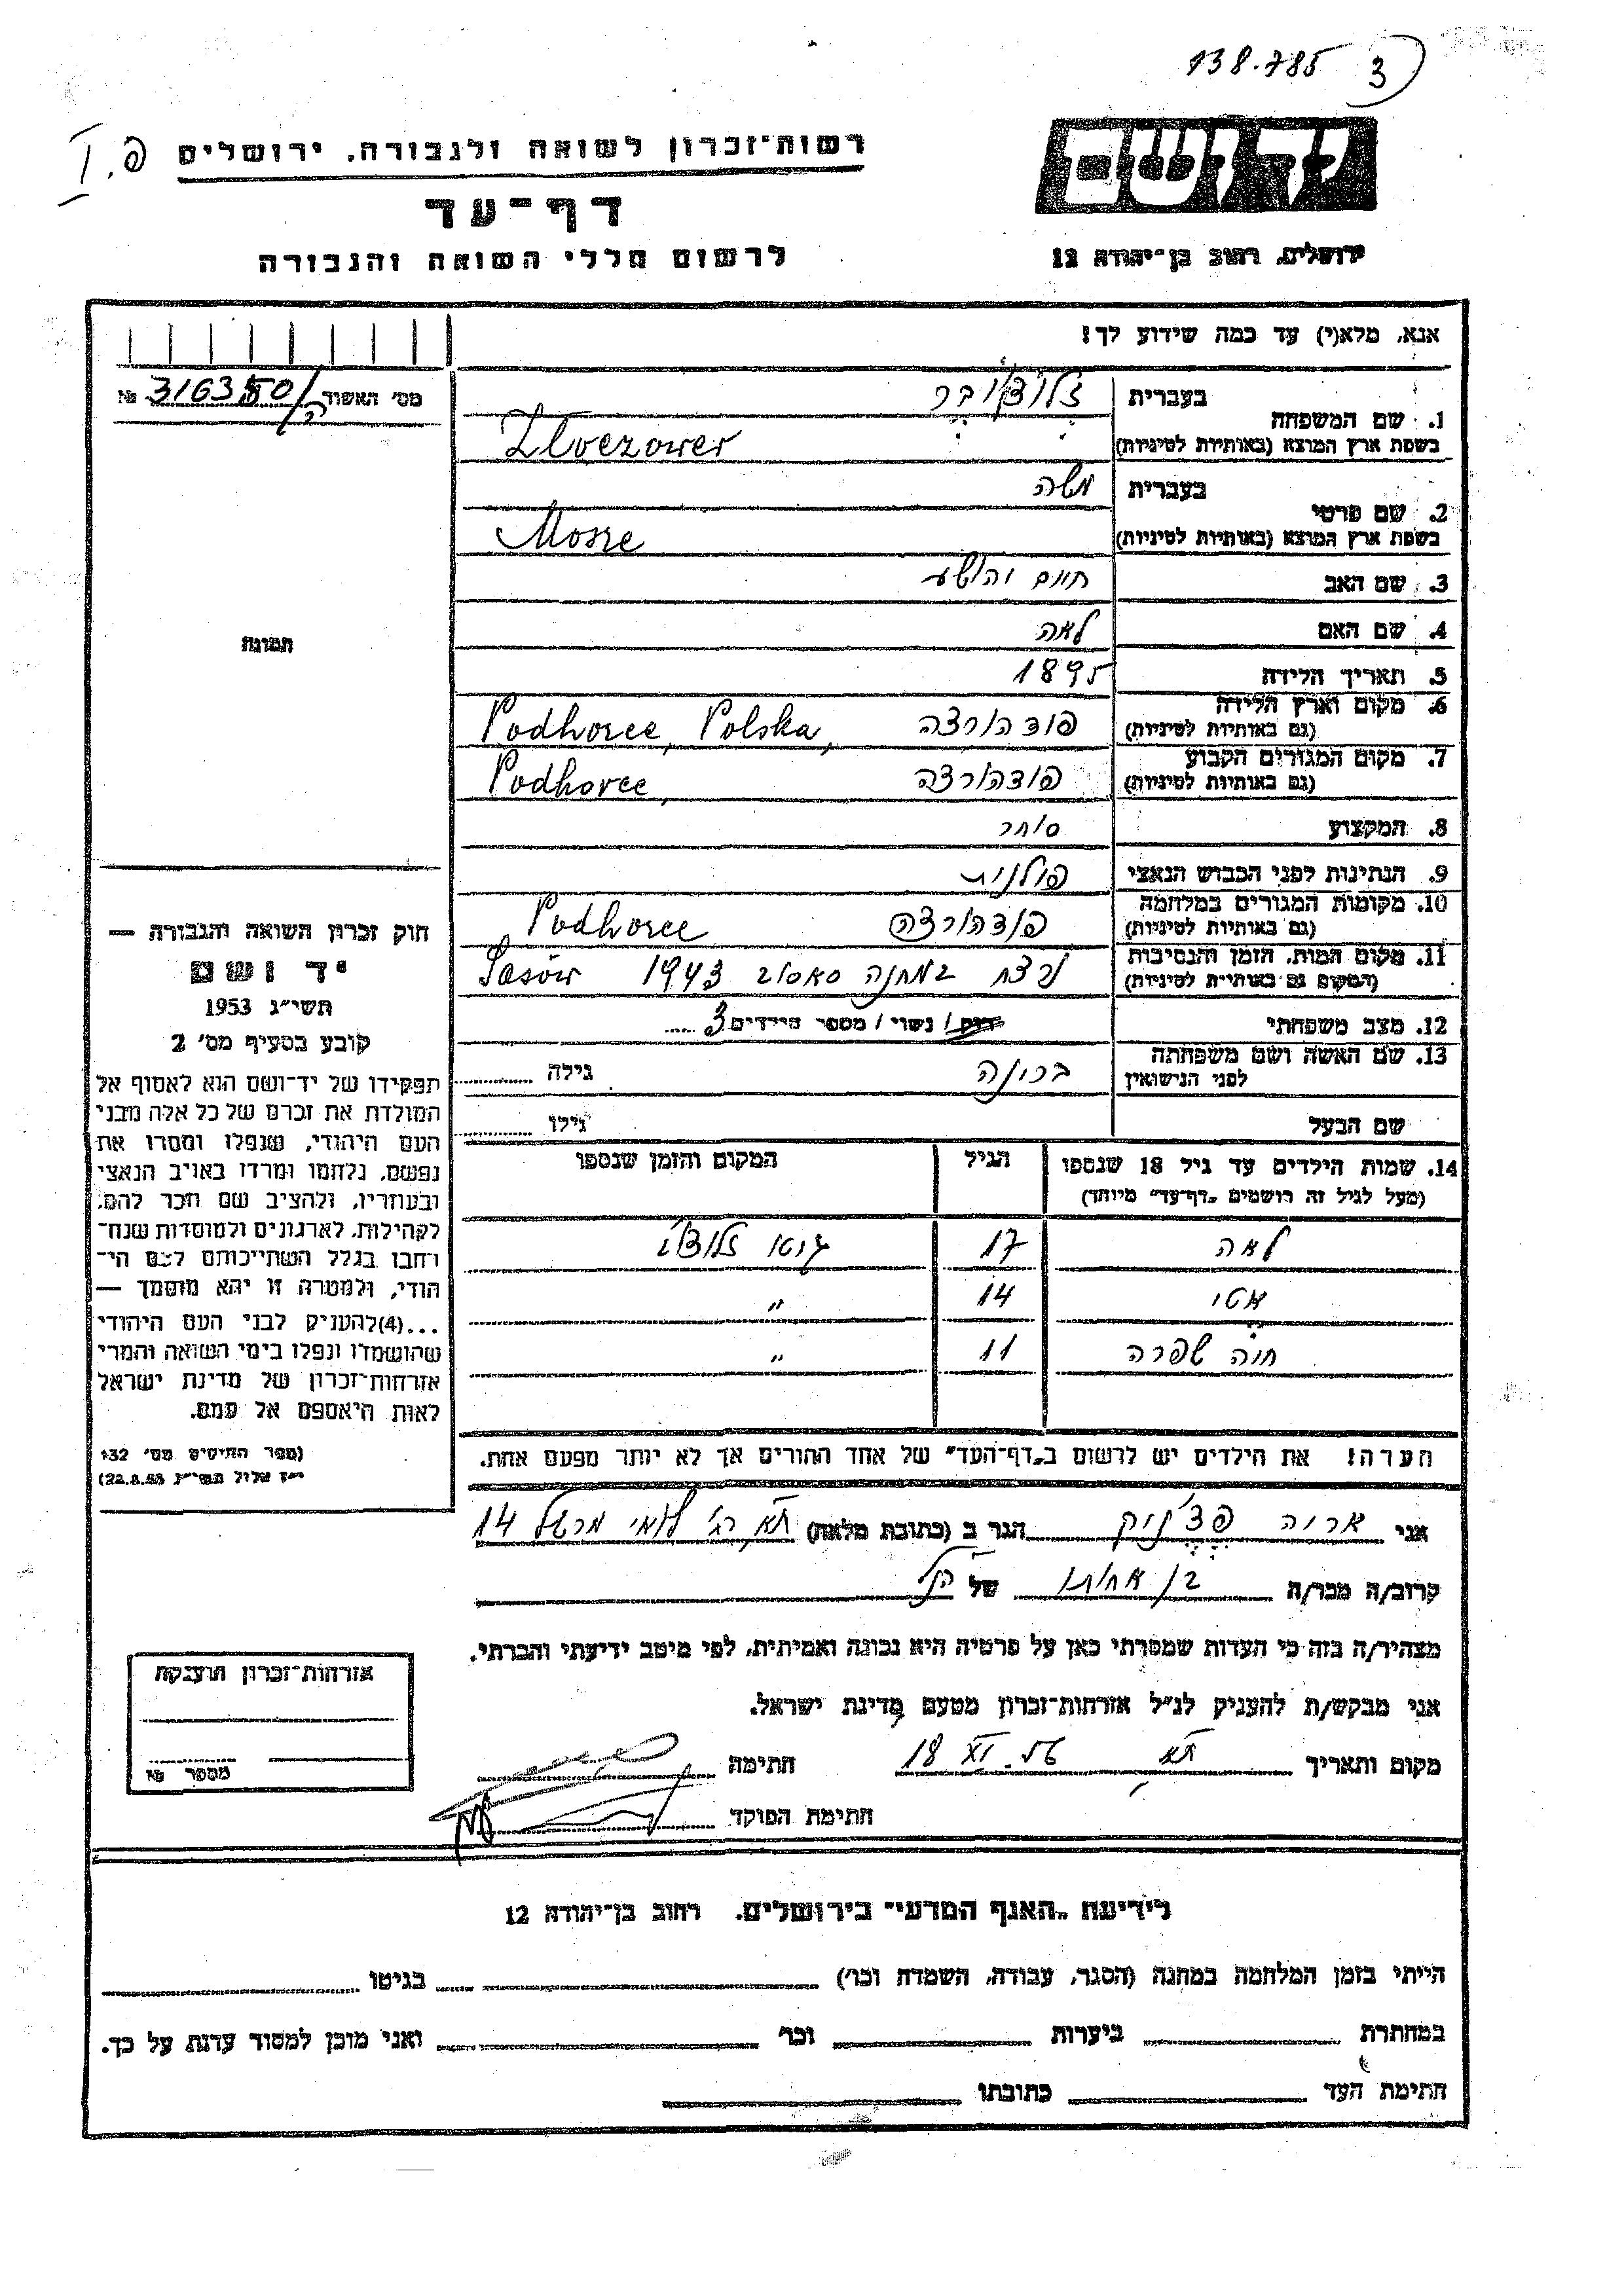 138.785 3
רשות־זכרון לשואה ולגבורה, ירושלים
דף־עד
לרשום חללי השואה והגבורה
פ. I
יד ושם
ירושלים, רחוב בן־יהודה 12
אנא, מלא(י) עד כמה שידוע לך!
1. שם המשפחה
בעברית זלוצ'ובר
בשפת ארץ המוצא (באותיות לטיניות) Zloczower
2. שם פרטי
בעברית משה
בשפת ארץ המוצא (באותיות לטיניות) Mosze
3. שם האב חיים יהושע
4. שם האם לאה
5. תאריך הלידה 1895
6. מקום וארץ הלידה (גם באותיות לטיניות) פודהורצה Podhorce, Polska,
7. מקום המגורים הקבוע (גם באותיות לטיניות) פודהורצה Podhorce,
8. המקצוע סוחר
9. הנתינות לפני הכבוש הנאצי פולנית
10. מקומות המגורים במלחמה (גם באותיות לטיניות) פודהורצה Podhorce
11. מקום המות, הזמן והנסיבות (המקום גם באותיות לטיניות) נרצח במחנה סאסוב 1943 Sasów
12. מצב משפחתי רווק / נשוי / מספר הילדים 3
13. שם האשה ושם משפחתה לפני הנישואין ברונה גילה
שם הבעל גילו
14. שמות הילדים עד גיל 18 שנספו הגיל המקום והזמן שנספו
(מעל לגיל זה רושמים „דף־עד” מיוחד)
לאה 17 גיטו זלוצ'וב
אטי 14 "
חיה שפרה 11 "
הערה! את הילדים יש לרשום ב„דף־העד” של אחד ההורים אך לא יותר מפעם אחת.
מס' האשור 316350/ №
תמונה
חוק זכרון השואה והגבורה —
יד ושם
תשי"ג 1953
קובע בסעיף מס' 2
תפקידו של יד־ושם הוא לאסוף אל
המולדת את זכרם של כל אלה מבני
העם היהודי, שנפלו ומסרו את
נפשם, נלחמו ומרדו באויב הנאצי
ובעוזריו, ולהציב שם וזכר להם,
לקהילות, לארגונים ולמוסדות שנח־
רבו בגלל השתייכותם לעם הי־
הודי, ולמטרה זו יהא מוסמך —
...(4) להעניק לבני העם היהודי
שהושמדו ונפלו בימי השואה והמרי
אזרחות־זכרון של מדינת ישראל
לאות היאספם אל עמם.
(ספר החוקים מס' 132
י"ז אלול תשי"ג 28.8.53)
אני אריה פצ'ניק הגר ב (כתובת מלאה) ת"א רח' 14
קרוב/ה מכר/ה בן אחותו של הנ"ל
מצהיר/ה בזה כי העדות שמסרתי כאן על פרטיה היא נכונה ואמיתית, לפי מיטב ידיעתי והכרתי.
אני מבקש/ת להעניק לנ"ל אזרחות־זכרון מטעם מדינת ישראל.
מקום ותאריך ת"א 18 XI. 56 חתימה
חתימת הפוקד
אזרחות־זכרון הוענקה
מספר №
לידיעת „האגף המדעי” בירושלים, רחוב בן־יהודה 12
הייתי בזמן המלחמה במחנה (הסגר, עבודה, השמדה וכו') בגיטו
במחתרת ביערות וכו' ואני מוכן למסור עדות על כך.
חתימת העד כתובתו